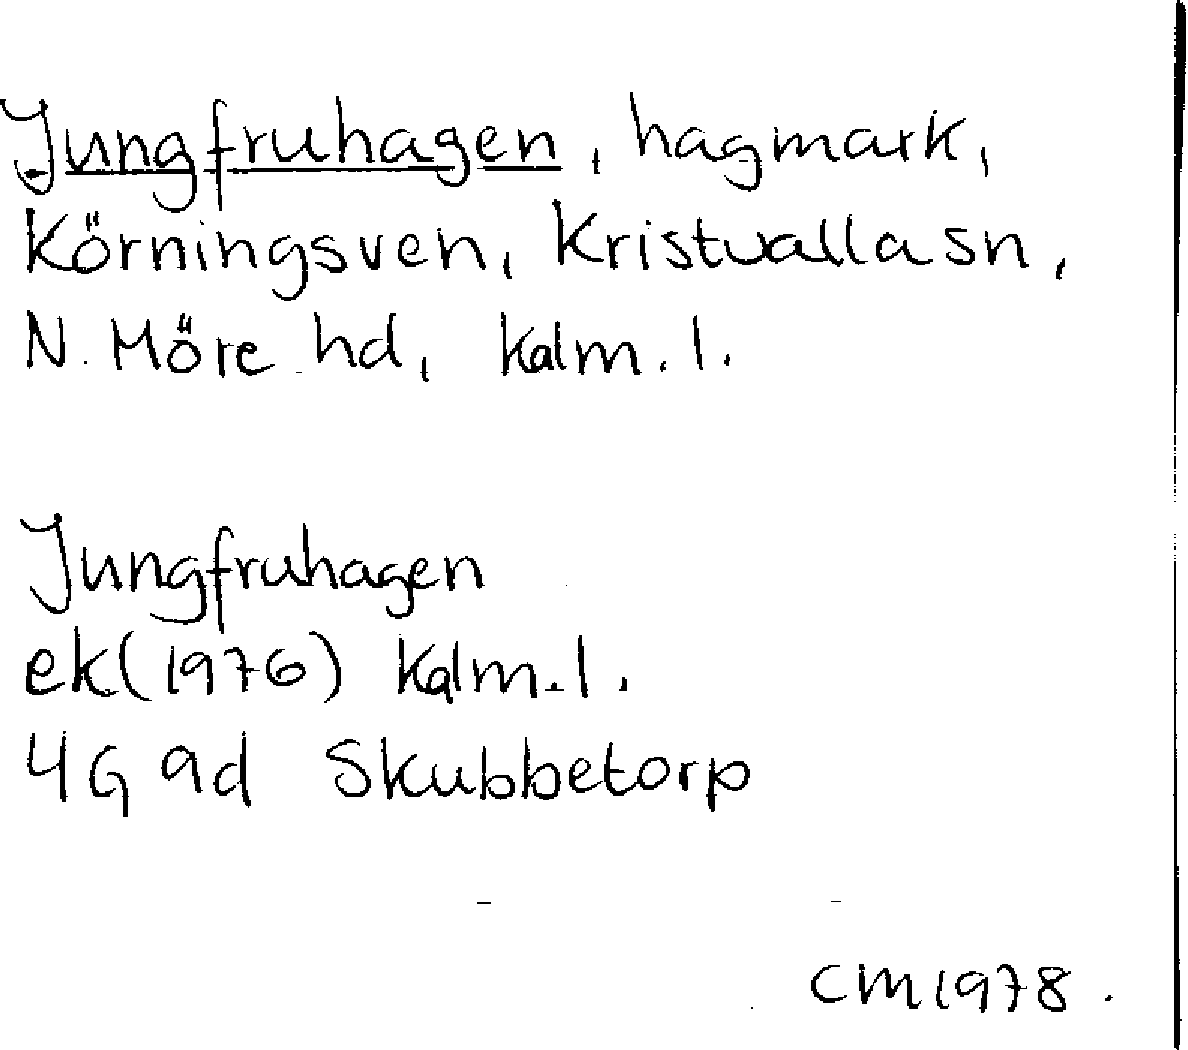 Jungfruhagen, hagmark,
Körningsven, Kristvalla sn,
N. Möre hd, Kalm. l.
Jungfruhagen
ek (1976) Kalm. l.
4G 9d Skubbetorp
CM 1978.